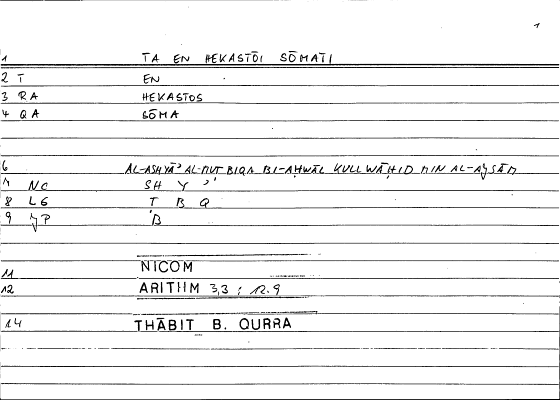 1
1 TA EN HEKASTŌI SŌMATI
2 T EN
3 RA HEKASTOS
4 QA SŌMA
6 AL-ASHYĀʾ AL-MUṬBIQA BI-AḤWĀL KULL WĀḤID MIN AL-AǦSĀM
7 NC SH Y ʾ
8 LG Ṭ B Q
9 ǦP
11 NICOM
12 ARITHM 3,3 ; 12.9
14 THĀBIT B. QURRA